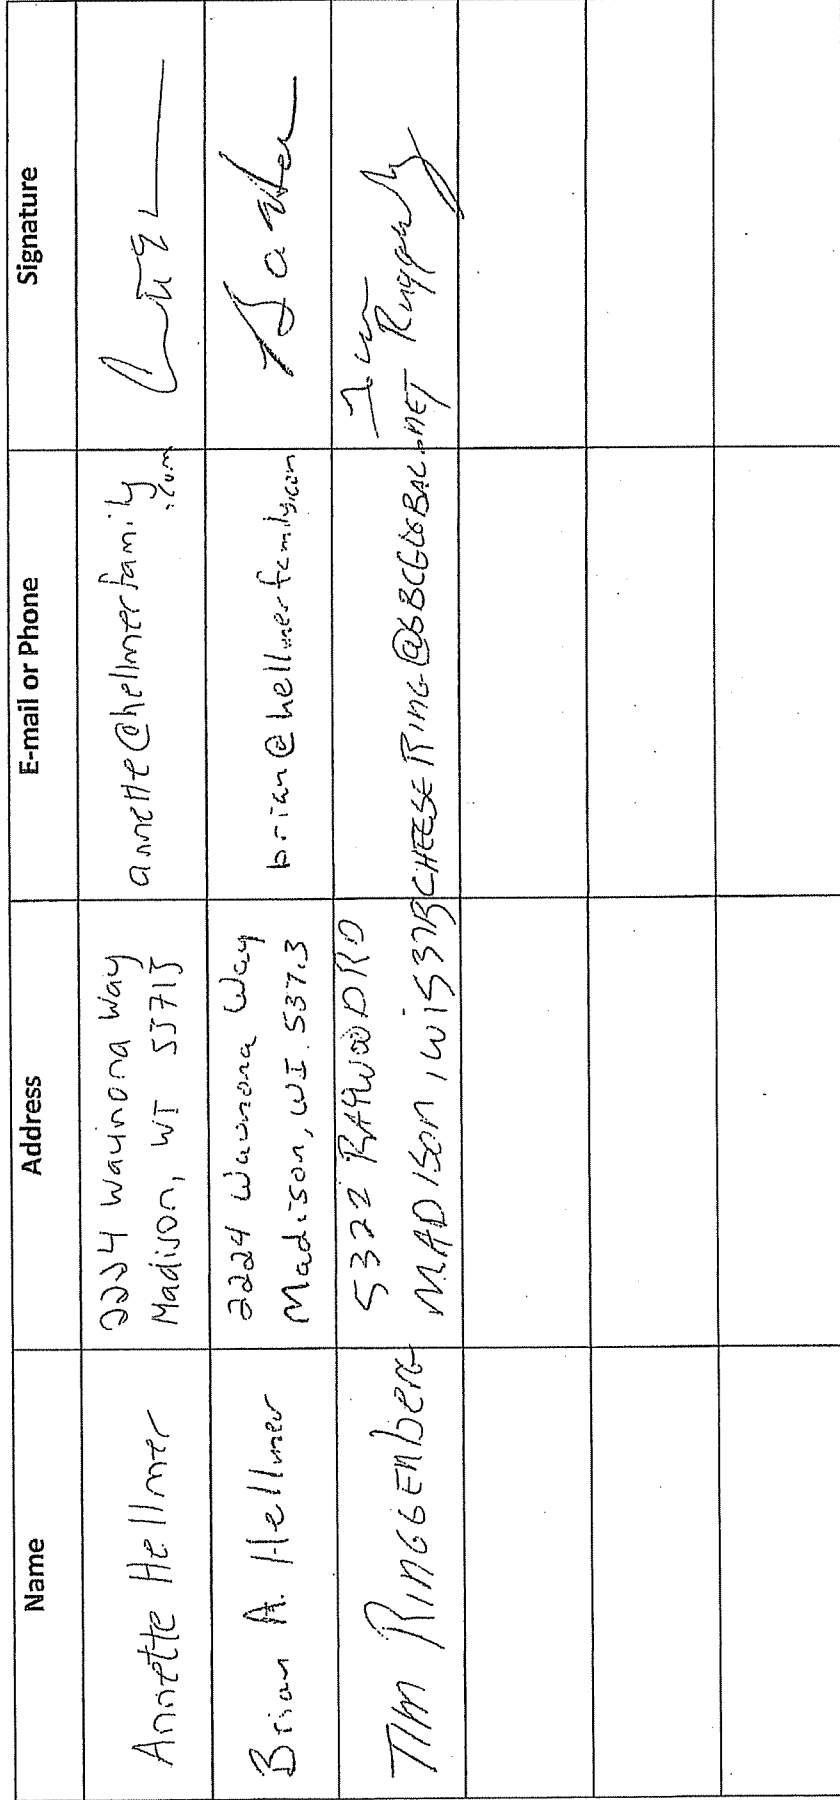 Name Address E-mail or Phone Signature
Annette Hellmer
2224 Waunona Way
Madison, WI 53713
annette@hellmerfamily
.com
Brian A. Hellmer
2224 Waunona Way
Madison, WI 53713
brian@hellmerfamily.com
Tim RINGGENberg
5322 RAYWOOD RD
MADISON, WI 53713
CHEESERING@SBCGLOBAL.NET
Tim